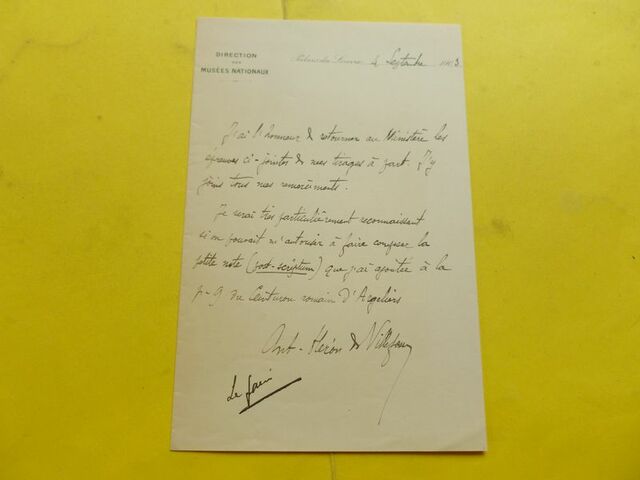 DIRECTION
DES
MUSÉES NATIONAUX
Palais du Louvre, 4 Septembre 1903
J'ai l'honneur de retourner au Ministère les
épreuves ci-jointes de mes tirages à part. J'y
joins tous mes remerciements.
Je serai très particulièrement reconnaissant
si on pouvait m'autoriser à faire composer la
petite note (post-scriptum) que j'ai ajoutée à la
p. 9 du Ceinturon romain d'Argeliers
Ant. Héron de Villefosse
Le faire